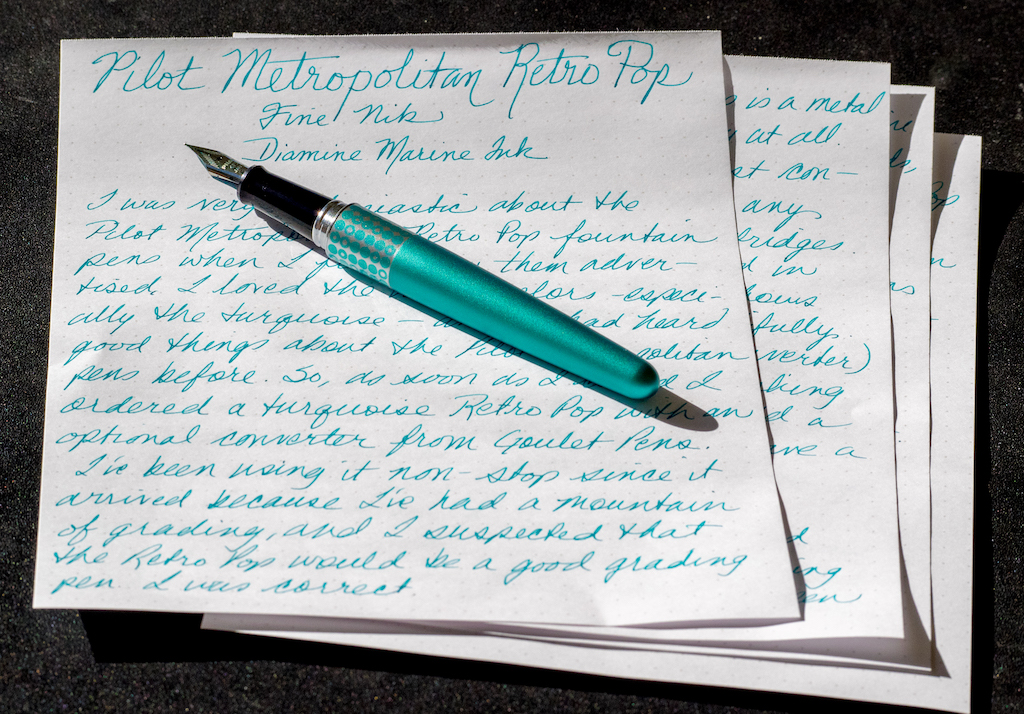 Pilot Metropolitan Retro Pop
Fine Nib
Diamine Marine Ink
I was very siastic about the
Pilot Metropo Retro Pop fountain
pens when I them adver-
tised. I loved the colors - especi-
ally the turquoise - had heard
good things about the Pilot politan
pens before. So, as soon as I
ordered a turquoise Retro Pop with an
optional converter from Goulet Pens.
I've been using it non-stop since it
arrived because I've had a mountain
of grading, and I suspected that
the Retro Pop would be a good grading
pen. I was correct
is a metal
at all.
con-
any
ridges.
in
fully.
verter)
king
a
ve a
d
ing
en